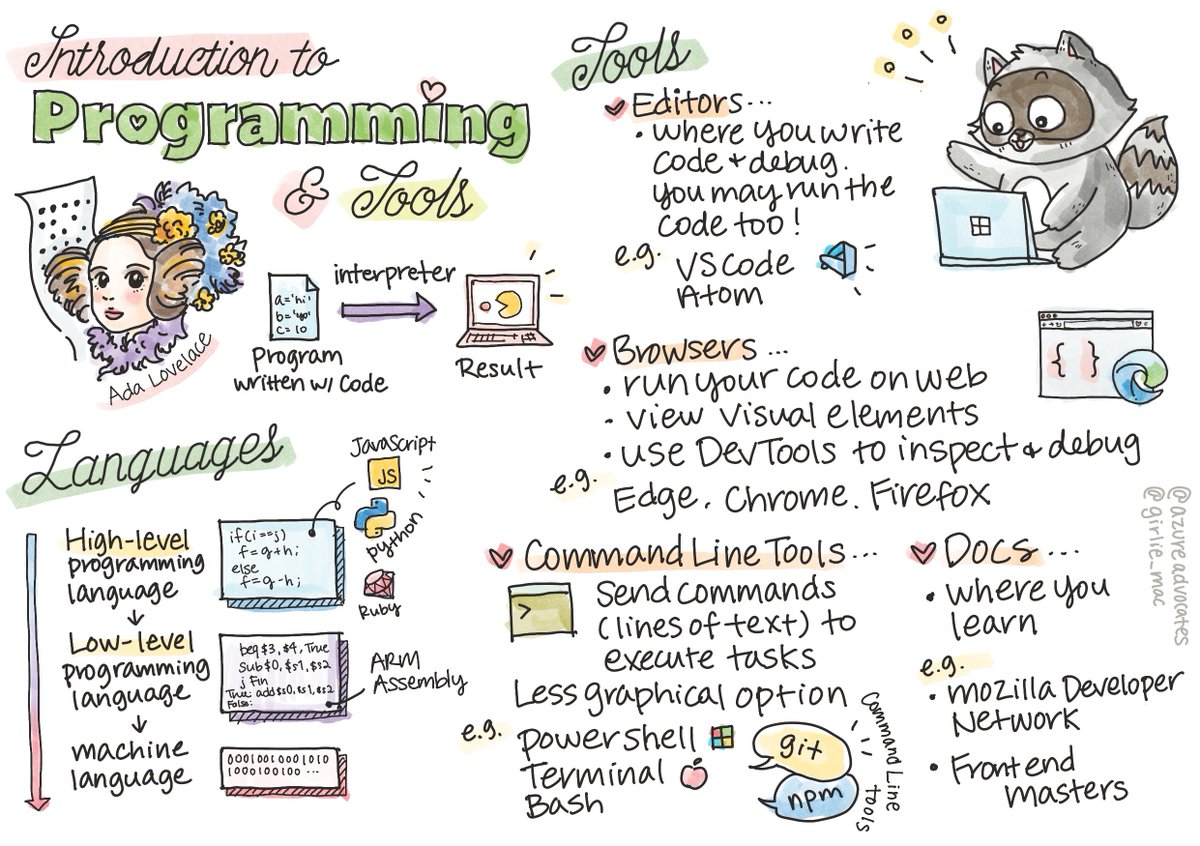 Introduction to
Programming
& Tools
Ada Lovelace
a='hi'
b='yo'
c=10
Program
written w/ Code
interpreter
Result
Languages
High-level
programming
language
if(i==j)
f=g+h;
else
f=g-h;
JavaScript
JS
python
Ruby
Low-level
programming
language
beq $3, $4, True
Sub $0, $s1, $s2
j Fin
True: add $s0, $s1, $s2
False:
ARM
Assembly
machine
language
00010010001010
1000100100 ...
Tools
Editors...
• where you write
code + debug.
you may run the
code too!
e.g.
VS Code
Atom
Browsers...
• run your code on web
• view visual elements
• use DevTools to inspect & debug
e.g.
Edge, Chrome, Firefox
{ }
Command Line Tools...
>
Send commands
(lines of text) to
execute tasks
Less graphical option
e.g.
powershell
Terminal
Bash
git
npm
Command Line
tools
Docs....
• where you
learn
e.g.
• mozilla Developer
Network
• Frontend
masters
@azureadvocates
@girlie_mac